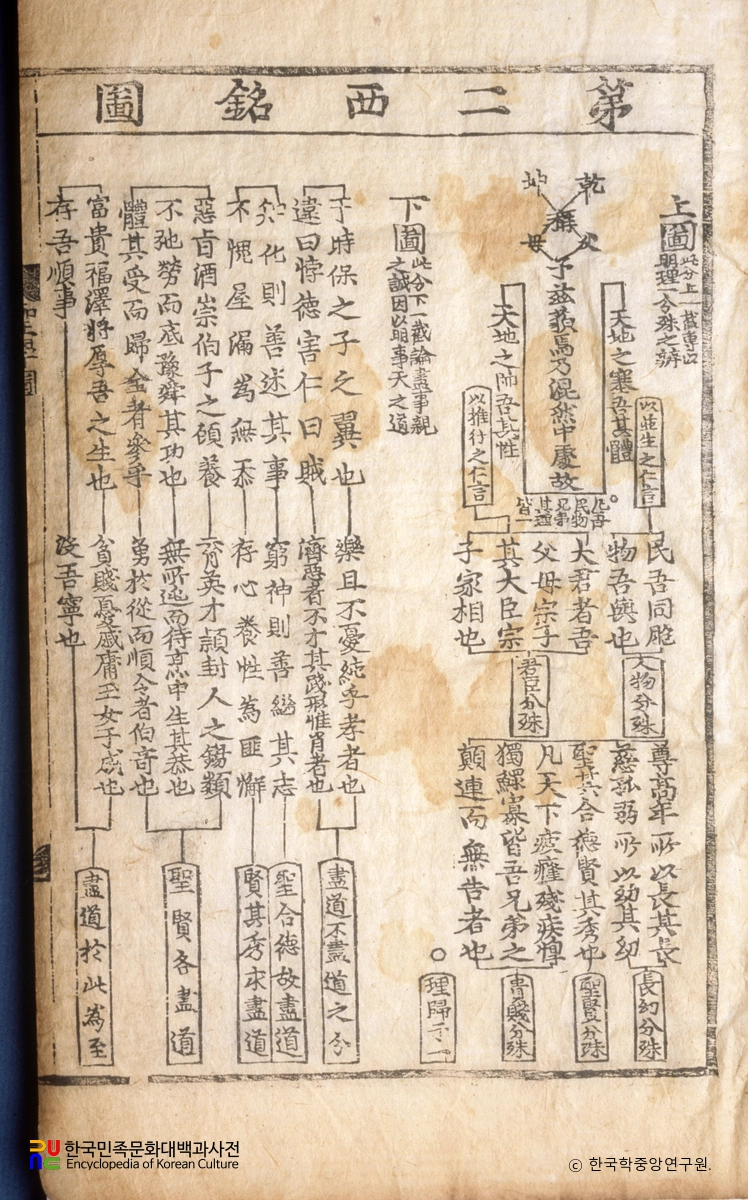 第二西銘圖
上圖
此分上一截專以
明理一分殊之辨
乾父
坤母
稱
予茲藐焉乃混然中處故
天地之塞吾其體
天地之帥吾其性
以並生之仁言
以推行之仁言
民吾同胞
物吾與也
大君者吾
父母宗子
其大臣宗
子家相也
人物分殊
君臣分殊
尊高年所以長其長
慈孤弱所以幼其幼
聖其合德賢其秀也
凡天下疲癃殘疾惸
獨鰥寡皆吾兄弟之
顛連而無告者也
長幼分殊
聖賢分殊
貴賤分殊
理歸于一
下圖
此分下一截論盡事親
之誠因以明事天之道
于時保之子之翼也
樂且不憂純乎孝者也
違曰悖德害仁曰賊
濟惡者不才其踐形惟肖者也
盡道不盡道之分
知化則善述其事
窮神則善繼其志
聖合德故盡道
不愧屋漏為無忝
存心養性為匪懈
賢其秀求盡道
惡旨酒崇伯子之顧養
育英才潁封人之錫類
不弛勞而底豫舜其功也
無所逃而待烹申生其恭也
體其受而歸全者參乎
勇於從而順令者伯奇也
聖賢各盡道
富貴福澤將厚吾之生也
貧賤憂戚庸玉女于成也
存吾順事
沒吾寧也
盡道於此為至
한국민족문화대백과사전
Encyclopedia of Korean Culture
© 한국학중앙연구원.